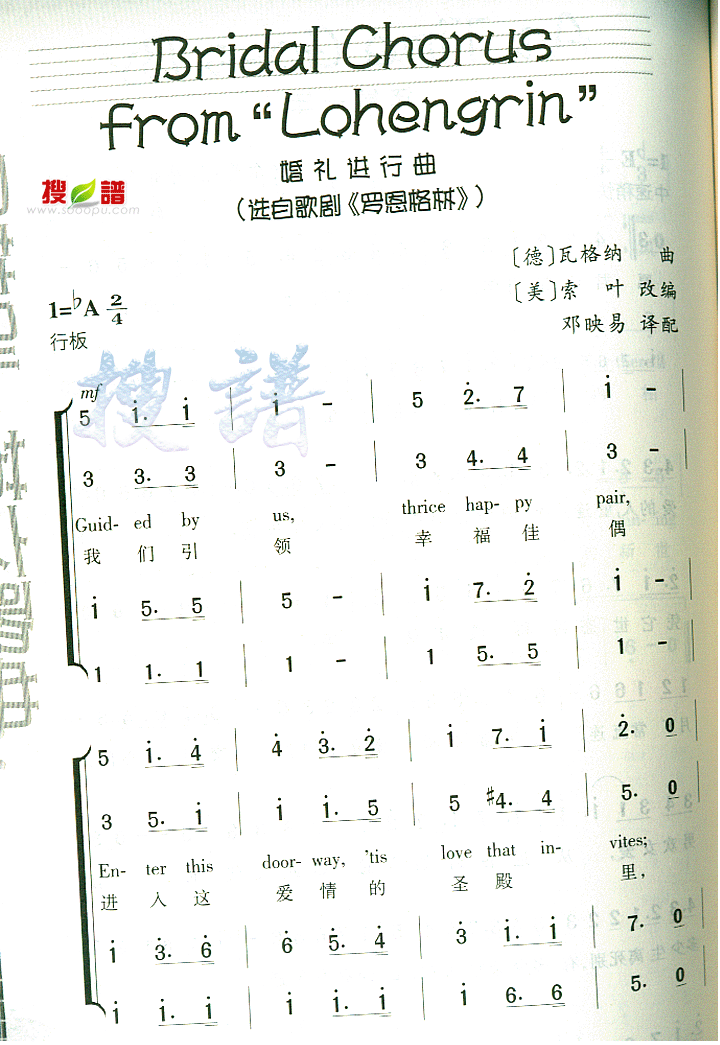 Bridal Chorus
from “Lohengrin”
婚礼进行曲
(选自歌剧《罗恩格林》)
搜谱
www.sooopu.com
〔德〕瓦格纳 曲
〔美〕索 叶 改编
邓映易 译配
1=♭A 2/4
行板
搜谱
mf
5 i̇. i̇ | i̇ - | 5 2̇. 7 | i̇ - |
3 3. 3 | 3 - | 3 4. 4 | 3 - |
Guid- ed by us, thrice hap- py pair,
我 们 引 领 幸 福 佳 偶
i̇ 5. 5 | 5 - | i̇ 7. 2̇ | i̇ - |
1 1. 1 | 1 - | 1 5. 5 | 1 - |
5 i̇. 4̇ | 4̇ 3̇. 2̇ | i̇ 7. i̇ | 2̇. 0 |
3 5. i̇ | i̇ i̇. 5 | 5 #4. 4 | 5. 0 |
En- ter this door- way, 'tis love that in- vites;
进 入 这 爱 情 的 圣 殿 里,
i̇ 3̇. 6̇ | 6̇ 5̇. 4̇ | 3̇ i̇. i̇ | 7. 0 |
i̇ i̇. i̇ | i̇ i̇. i̇ | i̇ 6. 6 | 5. 0 |